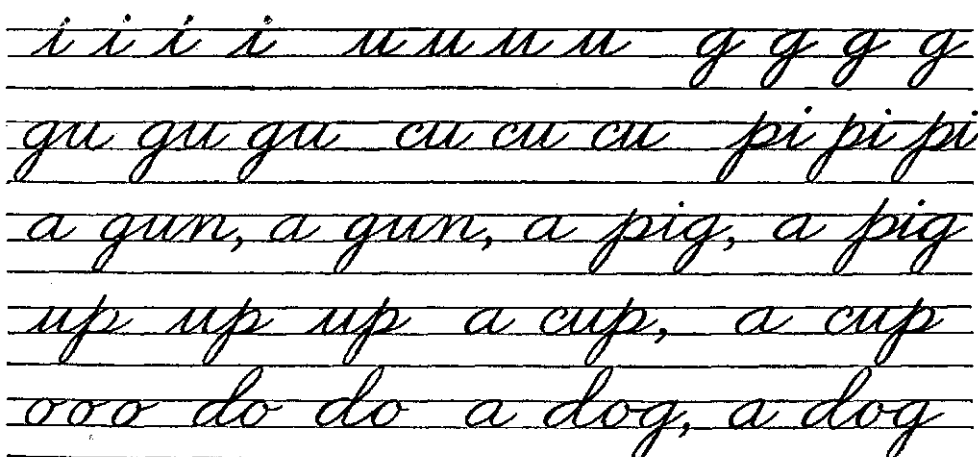 i i i i u u u u g g g g
gu gu gu cu cu cu pi pi pi
a gun, a gun, a pig, a pig
up up up a cup, a cup
ooo do do a dog, a dog